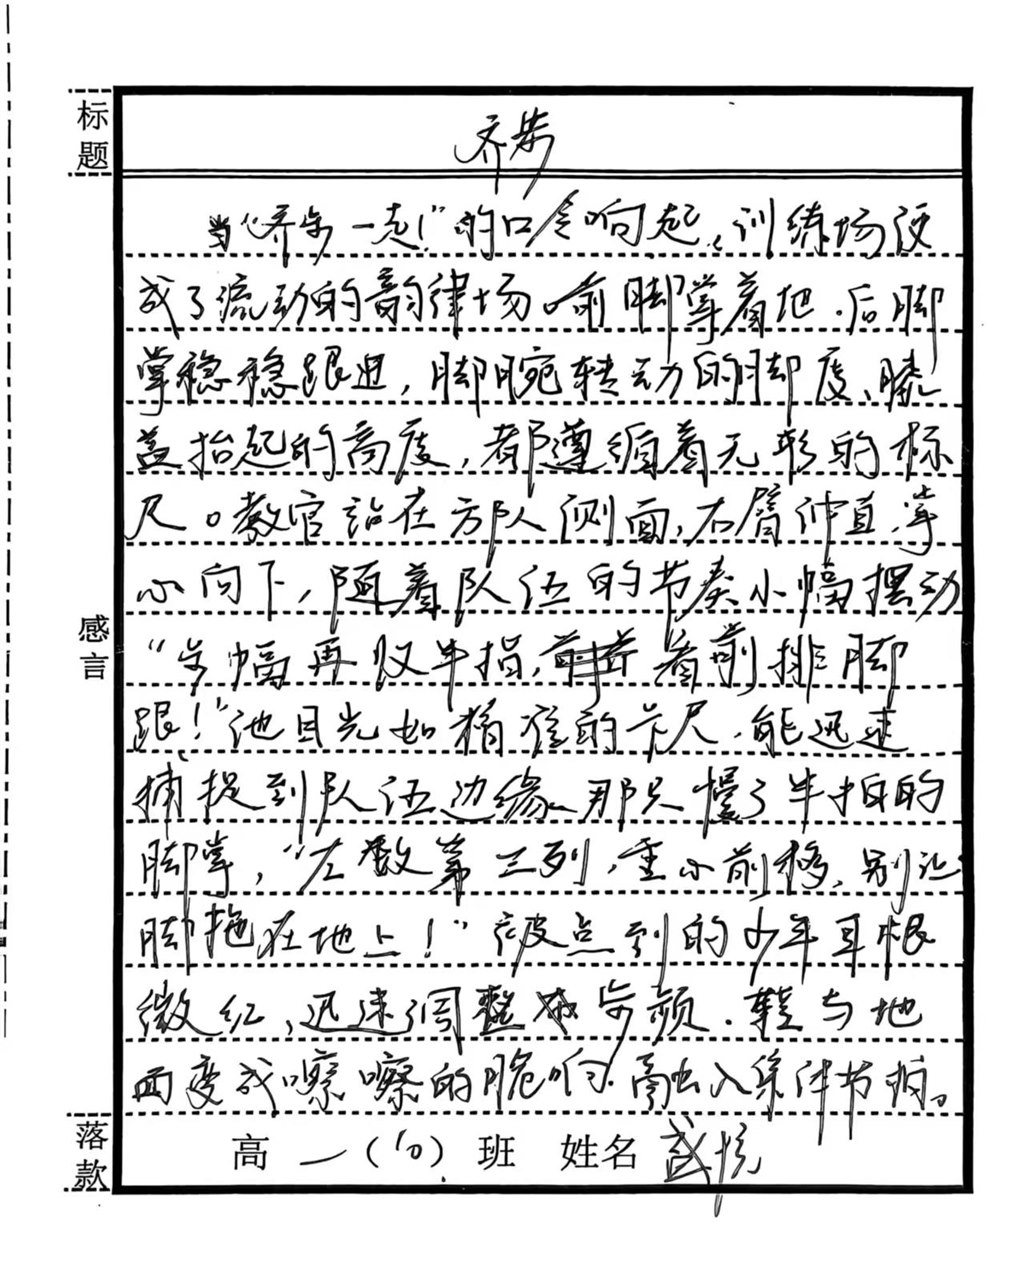 标题
齐步
当“齐步一走！”的口令响起，训练场便
成了流动的韵律场。前脚掌着地，后脚
掌稳稳跟进，脚腕转动的脚度、膝
盖抬起的高度，都遵循着无形的标
尺。教官站在方队侧面，右臂伸直，掌
心向下，随着队伍的节奏小幅摆动
“步幅再收半指，看前排脚
跟！”他目光如精准的卡尺，能迅速
捕捉到队伍边缘那只慢了半拍的
脚掌，“左数第三列，重心前移，别让
脚拖在地上！”被点到的少年耳根
微红，迅速调整步频，鞋与地
面变成嚓嚓的脆响，融入集体节拍。
感言
落款
高一（10）班 姓名 武